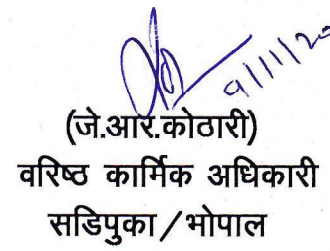 9/11/20
(जे.आर.कोठारी)
वरिष्ठ कार्मिक अधिकारी
सडिपुका/भोपाल